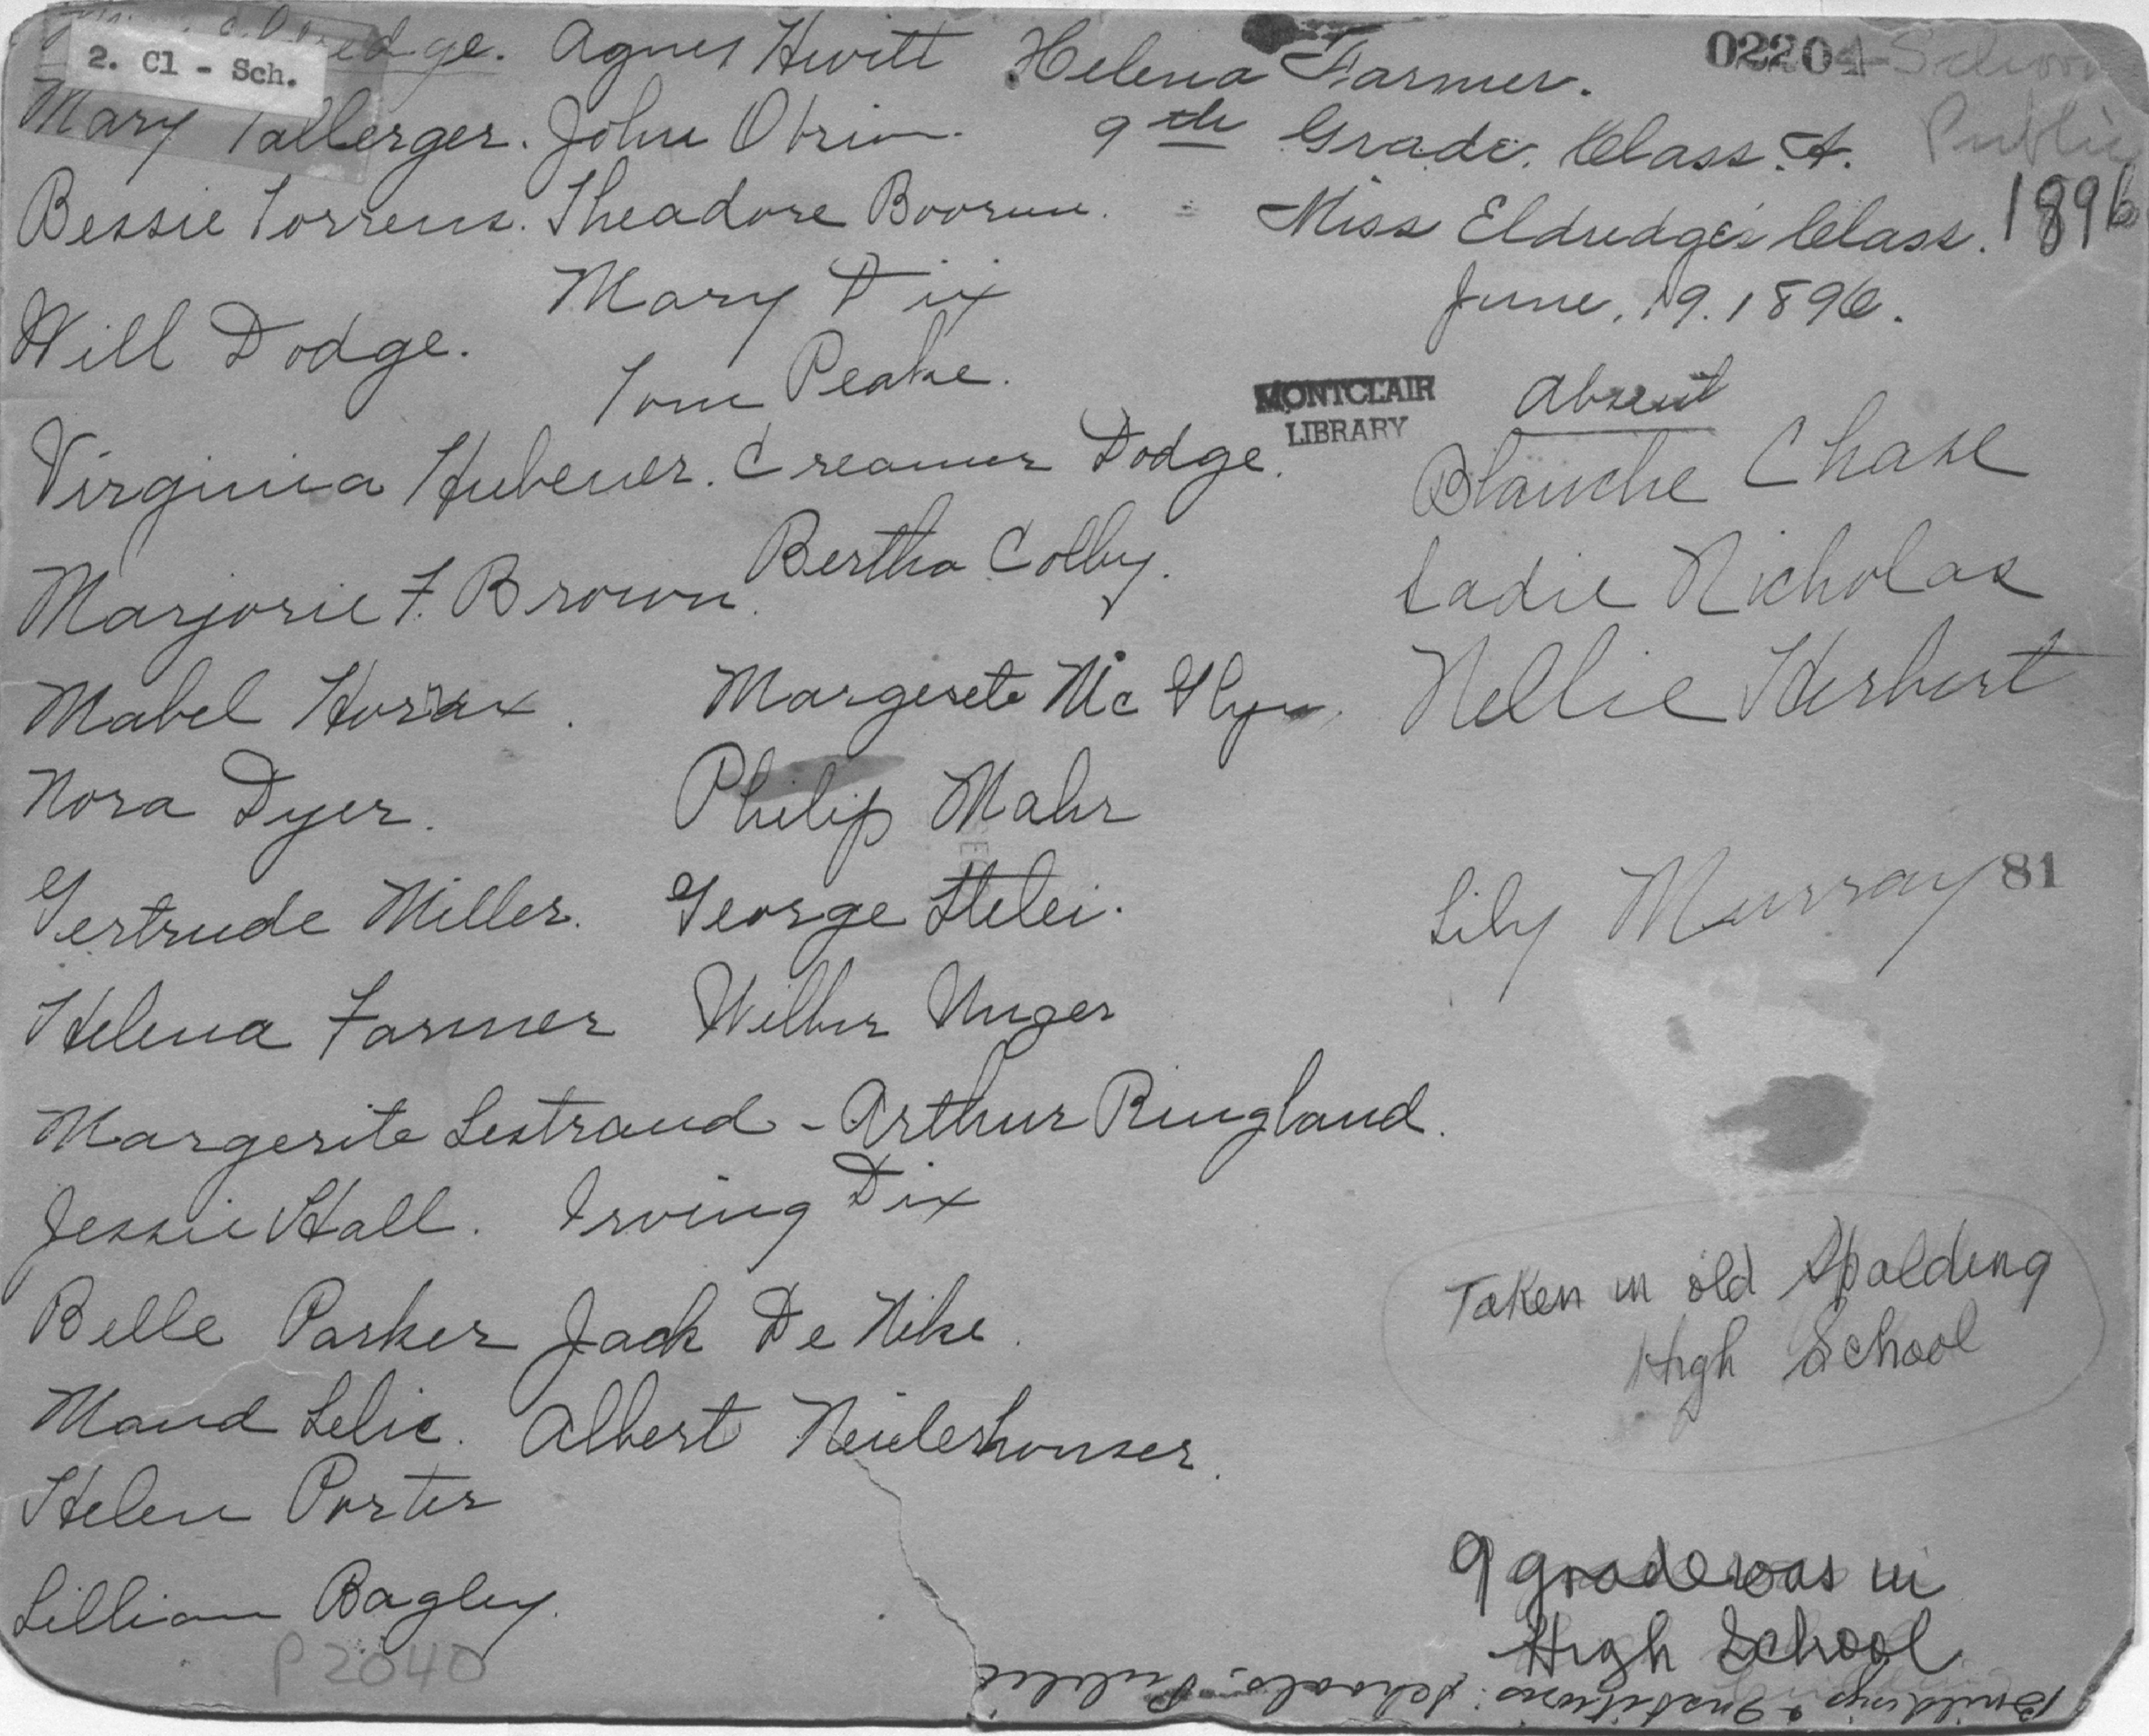 Eldredge. Agnes Hewitt Helena Farmer. 02204 School
2. Cl - Sch.
Mary Tallerger. John Obrien. 9th Grade. Class. A. Public
Bessie Torrens. Theadore Boorum. Miss Eldredge's Class. 1896
Mary Dix June, 19. 1896.
Will Dodge.
Tom Peake. MONTCLAIR Absent
LIBRARY
Virginia Hubener. Creamer Dodge. Blanche Chase
Marjorie F. Brown. Bertha Colby. Sadie Nicholas
Mabel Horax. Margerete Mc Glyn. Nellie Herbert
Nora Dyer. Philip Mahr
Gertrude Miller. George Stelei. Lily Murray 81
Helena Farmer Wilbur Unger
Margerite Lestrand - Arthur Ringland.
Jessie Hall. Irving Dix
Belle Parker Jack De Nike. Taken in old Spalding
High School
Maud Lelie. Albert Neiderhouser.
Helen Porter
Lillian Bagley. 9 grade was in
High School
P2040
Buildings & Institutions: Schools, Public